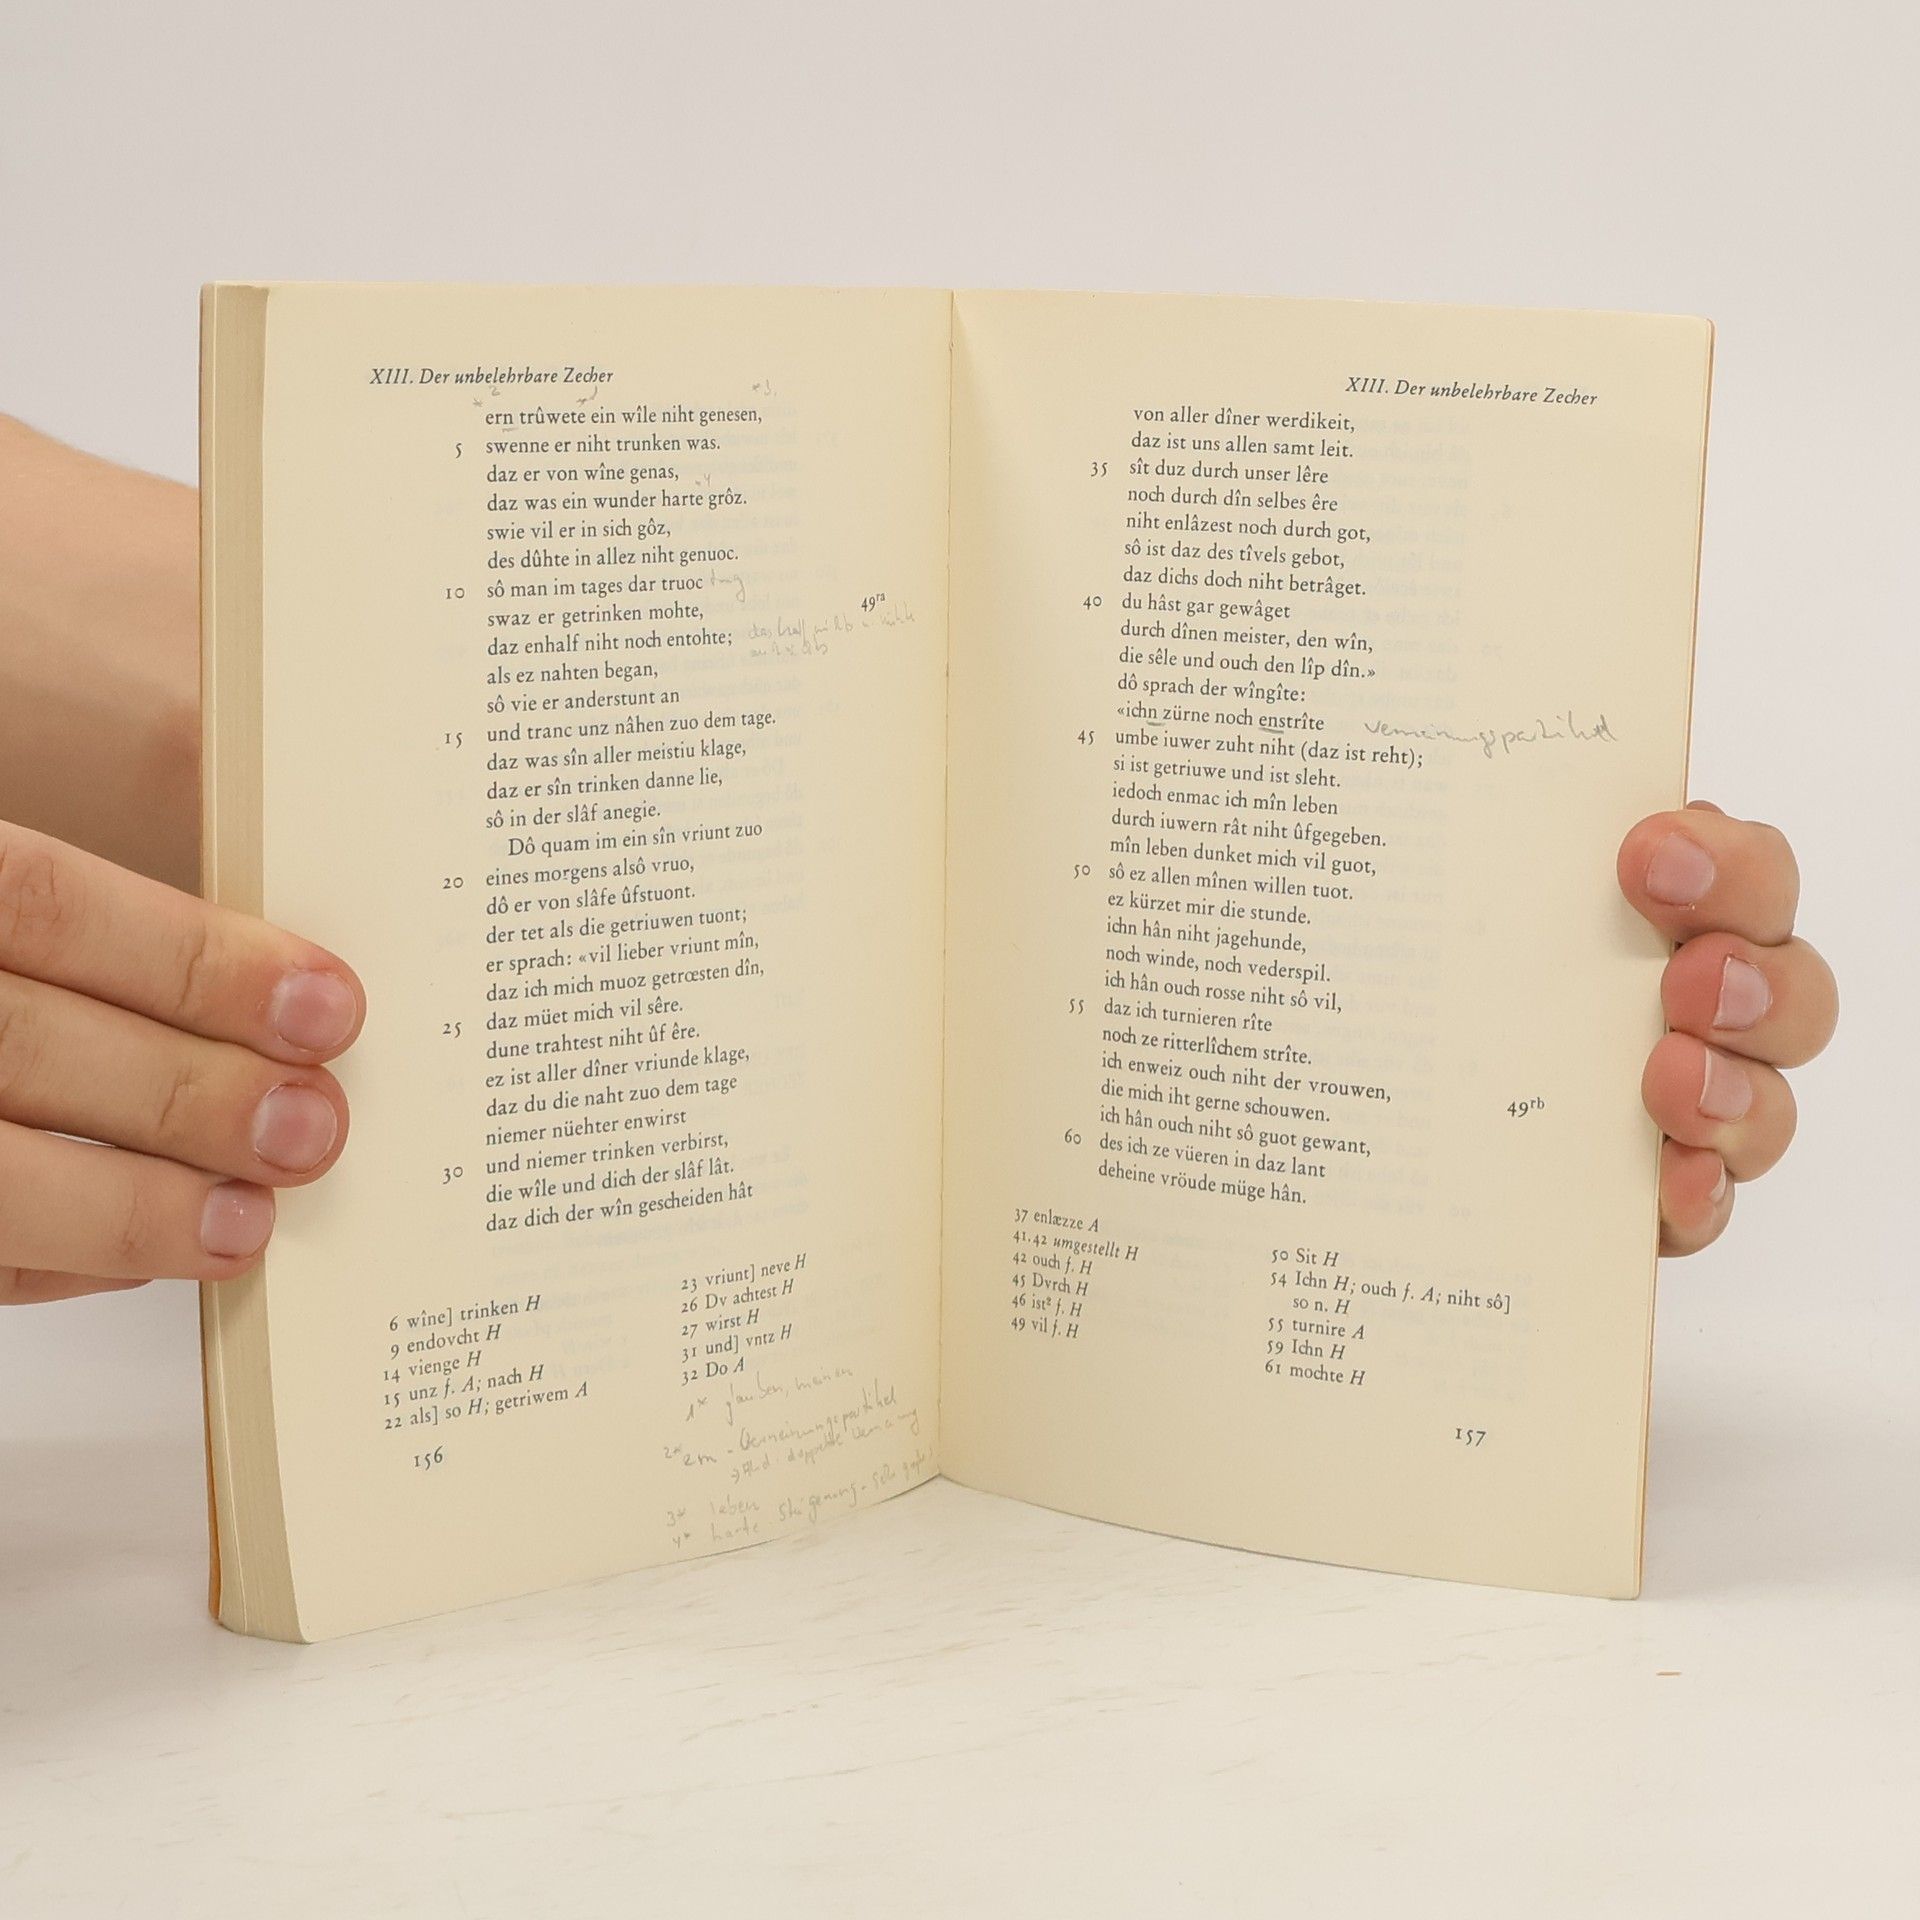 XIII. Der unbelehrbare Zecher
ern trûwete ein wîle niht genesen,
5 swenne er niht trunken was.
daz er von wîne genas,
daz was ein wunder harte grôz.
swie vil er in sich gôz,
des dûhte in allez niht genuoc.
10 sô man im tages dar truoc
swaz er getrinken mohte,
49ra
daz enhalf niht noch entohte;
als ez nahten began,
sô vie er anderstunt an
15 und tranc unz nâhen zuo dem tage.
daz was sîn aller meistiu klage,
daz er sîn trinken danne lie,
sô in der slâf anegie.
Dô quam im ein sîn vriunt zuo
20 eines morgens alsô vruo,
dô er von slâfe ûfstuont.
der tet als die getriuwen tuont;
er sprach: «vil lieber vriunt mîn,
daz ich mich muoz getrœsten dîn,
25 daz müet mich vil sêre.
dune trahtest niht ûf êre.
ez ist aller dîner vriunde klage,
daz du die naht zuo dem tage
niemer nüehter enwirst
30 und niemer trinken verbirst,
die wîle und dich der slâf lât.
daz dich der wîn gescheiden hât
6 wîne] trinken H
9 endovcht H
14 vienge H
15 unz f. A; nach H
22 als] so H; getriwem A
23 vriunt] neve H
26 Dv achtest H
27 wirst H
31 und] vntz H
32 Do A
1* glauben, meinen
2* - Verneinungspartikel
doppelte Verneinung
3* leben
4* harte
156
XIII. Der unbelehrbare Zecher
von aller dîner werdikeit,
daz ist uns allen samt leit.
35 sît duz durch unser lêre
noch durch dîn selbes êre
niht enlâzest noch durch got,
sô ist daz des tîvels gebot,
daz dichs doch niht betrâget.
40 du hâst gar gewâget
durch dînen meister, den wîn,
die sêle und ouch den lîp dîn.»
dô sprach der wîngîte:
«ichn zürne noch enstrîte
Verneinungspartikel
45 umbe iuwer zuht niht (daz ist reht);
si ist getriuwe und ist sleht.
iedoch enmac ich mîn leben
durch iuwern rât niht ûfgegeben.
mîn leben dunket mich vil guot,
50 sô ez allen mînen willen tuot.
ez kürzet mir die stunde.
ichn hân niht jagehunde,
noch winde, noch vederspil.
ich hân ouch rosse niht sô vil,
55 daz ich turnieren rîte
noch ze ritterlîchem strîte.
ich enweiz ouch niht der vrouwen,
die mich iht gerne schouwen.
49rb
ich hân ouch niht sô guot gewant,
60 des ich ze vüeren in daz lant
deheine vröude müge hân.
37 enlæzze A
41.42 umgestellt H
42 ouch f. H
45 Dvrch H
46 ist² f. H
49 vil f. H
50 Sit H
54 Ichn H; ouch f. A; niht sô]
so n. H
55 turnire A
59 Ichn H
61 mochte H
157